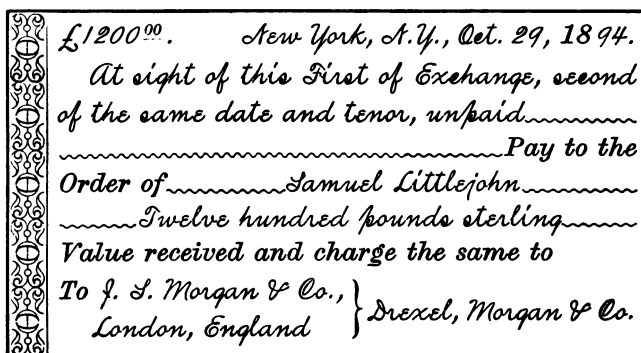 £1200 00. New York, N.Y., Oct. 29, 1894.
At sight of this First of Exchange, second
of the same date and tenor, unpaid
Pay to the
Order of Samuel Littlejohn
Twelve hundred pounds sterling
Value received and charge the same to
To J. S. Morgan & Co., } Drexel, Morgan & Co.
London, England